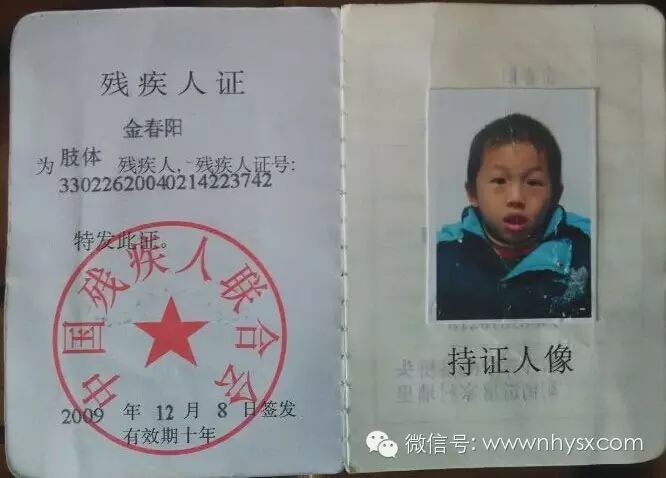 残疾人证
金春阳
为 肢体 残疾人，残疾人证号：
33022620040214223742
特发此证。
中国残疾人联合会
2009 年 12 月 8 日签发
有效期十年
持证人像
微信号: wwwnhysx.com